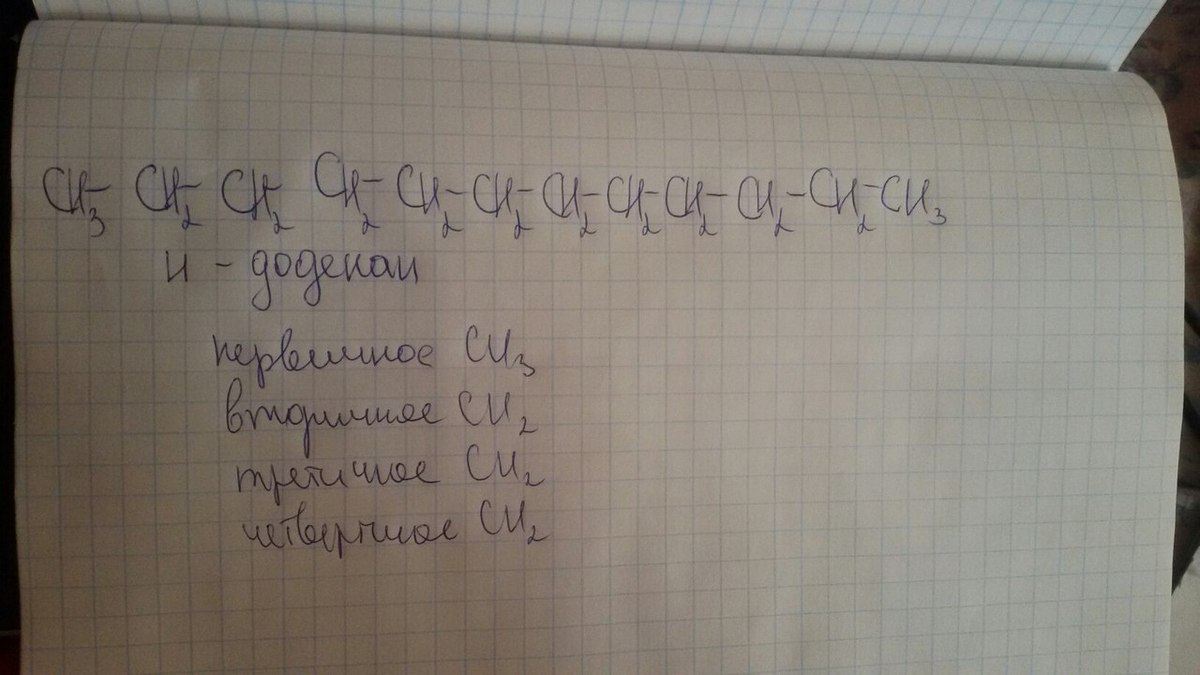 CH3- CH2- CH2 CH2-CH2-CH2-CH2-CH2-CH2-CH2-CH2-CH3
н - додекан
первичное CH3
вторичное CH2
третичное CH2
четвертичное CH2